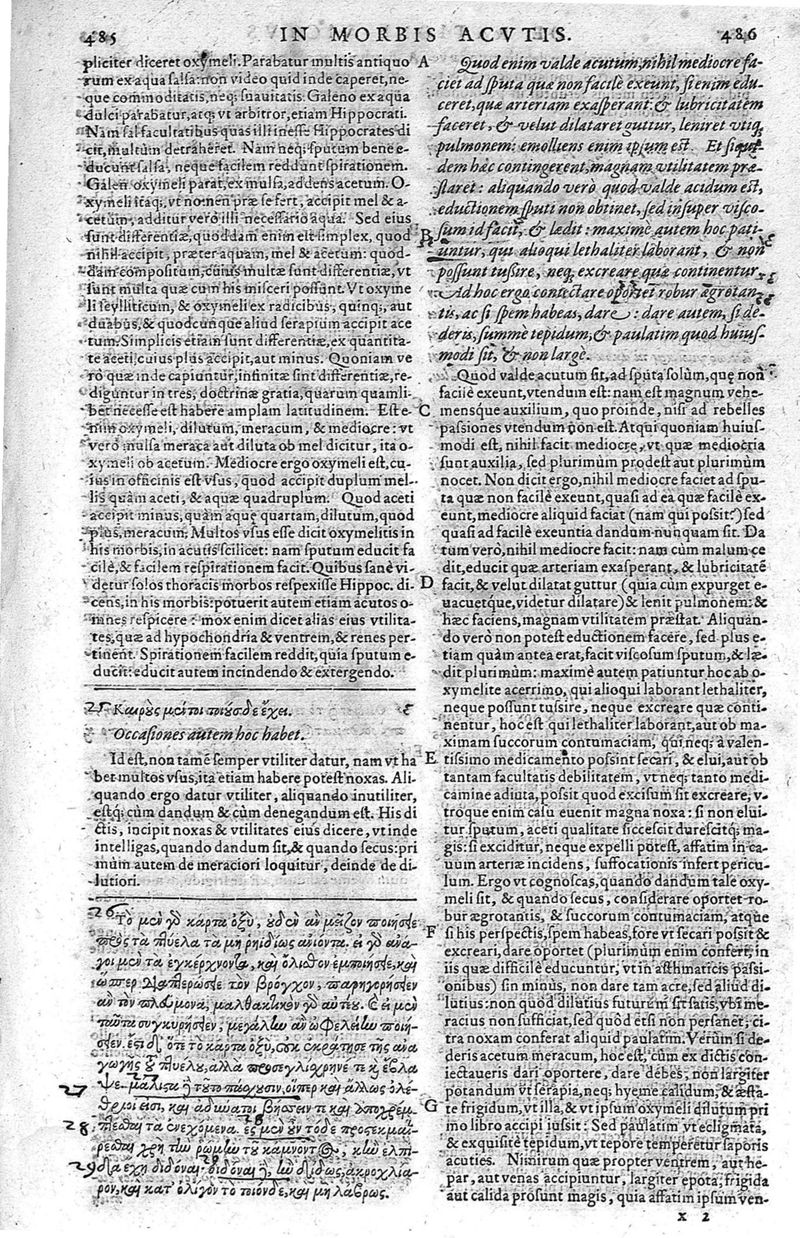 485
IN MORBIS ACVTIS.
486
pliciter diceret oxymeli. Parabatur multis antiquo
rum ex aqua salsa: non video quid inde caperet, ne-
que commoditatis, neq; suauitatis. Galeno ex aqua
dulci parabatur, atq; vt arbitror, etiam Hippocrati.
Nam sal facultatibus quas illi inesse Hippocrates di
cit, multum detraheret. Nam neq; sputum bene e-
ducunt salsa, neque facilem reddunt spirationem.
Galen oxymeli parat, ex mulsa, addens acetum. O-
xymeli itaq;, vt nomen præ se fert, accipit mel & a-
cetum, additur verò illi necessario aqua. Sed eius
sunt differentiæ, quoddam enim est simplex, quod
nihil accipit, præter aquam, mel & acetum: quod-
dam compositum, cuius multæ sunt differentiæ, vt
sunt multa quæ cum his misceri possunt. Vt oxyme
li scylliticum, & oxymeli ex radicibus, quinq;, aut
duabus, & quodcunque aliud serapium accipit ace
tum. Simplicis etiam sunt differentiæ, ex quantita-
te aceti, cuius plus accipit, aut minus. Quoniam ve
rò quæ inde capiuntur, infinitæ sint differentiæ, re-
diguntur in tres, doctrinæ gratia, quarum quamli-
bet necesse est habere amplam latitudinem. Est e-
nim oxymeli, dilutum, meracum, & mediocre: vt
verò mulsa meraca aut diluta ob mel dicitur, ita o-
xymeli ob acetum. Mediocre ergo oxymeli est, cu-
ius in officinis est vsus, quod accipit duplum mel-
lis quàm aceti, & aquæ quadruplum. Quod aceti
accipit minus, quàm aquę quartam, dilutum, quod
plus, meracum. Multos vsus esse dicit oxymelitis in
his morbis, in acutis scilicet: nam sputum educit fa
cilè, & facilem respirationem facit. Quibus sanè vi-
detur solos thoracis morbos respexisse Hippoc. di-
cens, in his morbis: potuerit autem etiam acutos o-
mnes respicere: mox enim dicet alias eius vtilita-
tes, quæ ad hypochondria & ventrem, & renes per-
tinent. Spirationem facilem reddit, quia sputum e-
ducit: educit autem incindendo & extergendo.
25 Καιροὺς μέντοι τοιούσδε ἔχει.
Occasiones autem hoc habet.
Id est, non tamē semper vtiliter datur, nam vt ha
bet multos vsus, ita etiam habere potest noxas. Ali-
quando ergo datur vtiliter, aliquando inutiliter,
estq; cùm dandum & cùm denegandum est. His di
ctis, incipit noxas & vtilitates eius dicere, vt inde
intelligas, quando dandum sit, & quando secus: pri
mùm autem de meraciori loquitur, deinde de di-
lutiori.
26 Τὸ μὲν γὸ κάρτα ὀξὺ, οὐδὲν ἂν μεῖζον ποιήσειε
πρὸς τὰ πτύελα τὰ μὴ ῥηιδίως ἀνιόντα. εἰ γὸ ἀνά-
γοι μὲν τὰ ἐγκέρχνοντα, καὶ ὄλισθον ἐμποιήσειε, καὶ
ὥσπερ διαπτερώσειε τὸν βρόγχον, παρηγορήσειεν
ἂν τὸν πλεύμονα, μαλθακτικὸν γὸ αὐτέου. Εἰ μὲν
ταῦτα συγκυρήσειεν, μεγάλην ὠφελείην ποιή-
σειεν. ἔστι δ' ὅτε τὸ κάρτα ὀξὺ, οὐκ ἐκράτησε τῆς ἀνα
γωγῆς τοῦ πτυέλου, ἀλλὰ προσεγλίσχρηνέ τε καὶ ἔβλα
27 ψε. μάλιστα δὲ τοῦτο πάσχουσιν, οἵπερ καὶ ἄλλως ὀλέ-
θριοί εἰσι, καὶ ἀδύνατοι βήσσειν τε καὶ ἀποχρέμ-
28. πτεσθαι τὰ ἐνεχόμενα. ἐς μὲν οὖν τόδε προστεκμαί-
ρεσθαι χρὴ τὴν ῥώμην τοῦ κάμνοντος, κἢν ἐλπί-
29 δα ἔχῃ διδόναι· διδόναι δὲ, ἢν διδῷς, ἀκροχλία-
ρον, καὶ κατ' ὀλίγον τὸ τοιόνδε, καὶ μὴ λάβρως.
A
Quod enim valde acutum, nihil mediocre fa-
ciet ad sputa quæ non facilè exeunt, si enim edu-
ceret, quæ arteriam exasperant: & lubricitatem
faceret, & velut dilataret guttur, leniret vtiq;
pulmonem: emolliens enim ipsum est. Et siqui-
dem hæc contingerent, magnam vtilitatem præ-
staret: aliquando verò quod valde acidum est,
eductionem sputi non obtinet, sed insuper visco-
B
sum id facit, & lædit: maximè autem hoc pati-
untur, qui alioqui lethaliter laborant, & non
possunt tussire, neq; excreare quæ continentur.
Ad hoc ergo coniectare oportet robur ægrotan-
tis, ac si spem habeas, dare: dare autem, si de-
deris, summè tepidum, & paulatim quod huius-
modi sit, & non largè.
Quod valde acutum sit, ad sputa solùm, quę non
facilè exeunt, vtendum est: nam est magnum vehe-
C
mensque auxilium, quo proinde, nisi ad rebelles
passiones vtendum non est. Atqui quoniam huius-
modi est, nihil facit mediocre, vt quæ mediocria
sunt auxilia, sed plurimùm prodest aut plurimùm
nocet. Non dicit ergo, nihil mediocre faciet ad spu-
ta quæ non facilè exeunt, quasi ad ea quæ facilè ex-
eunt, mediocre aliquid faciat (nam qui possit?) sed
quasi ad facilè exeuntia dandum nunquam sit. Da
tum verò, nihil mediocre facit: nam cùm malum ce
dit, educit quæ arteriam exasperant, & lubricitatē
D
facit, & velut dilatat guttur (quia cùm expurget e-
uacuetque, videtur dilatare) & lenit pulmonem: &
hæc faciens, magnam vtilitatem præstat. Aliquan-
do verò non potest eductionem facere, sed plus e-
tiam quàm antea erat, facit viscosum sputum, & læ-
dit plurimùm: maximè autem patiuntur hoc ab o-
xymelite acerrimo, qui alioqui laborant lethaliter,
neque possunt tussire, neque excreare quæ conti-
nentur, hoc est qui lethaliter laborant, aut ob ma-
ximam succorum contumaciam, qui neq; à valen-
E
tissimo medicamento possint secari, & elui, aut ob
tantam facultatis debilitatem, vt neq; tanto medi-
camine adiuta, possit quod excisum sit excreare, v-
troque enim casu euenit magna noxa: si non elui-
tur sputum, aceti qualitate siccescit durescitq; ma-
gis: si exciditur, neque expelli potest, affatim in ca-
uum arteriæ incidens, suffocationis infert pericu-
lum. Ergo vt cognoscas, quando dandum tale oxy-
meli sit, & quando secus, considerare oportet ro-
bur ægrotantis, & succorum contumaciam, atque
F
si his perspectis, spem habeas, fore vt secari possit &
excreari, dare oportet (plurimùm enim confert, in
iis quæ difficilè educuntur, vt in asthmaticis passi-
onibus) sin minus, non dare tam acre, sed aliud di-
lutius: non quòd dilutius futurum sit satis, vbi me-
racius non sufficiat, sed quòd etsi non persanet, ci-
tra noxam conferat aliquid paulatim. Verùm si de-
deris acetum meracum, hoc est, cùm ex dictis con-
iectaueris dari oportere, dare debes, non largiter
potandum vt serapia, neq; hyeme calidum, & æsta-
G
te frigidum, vt illa, & vt ipsum oxymeli dilutum pri
mo libro accipi iussit: Sed paulatim vt ecligmata,
& exquisitè tepidum, vt tepore temperetur saporis
acuties. Nimirum quæ propter ventrem, aut he-
par, aut venas accipiuntur, largiter epota, frigida
aut calida prosunt magis, quia affatim ipsum ven-
x 2